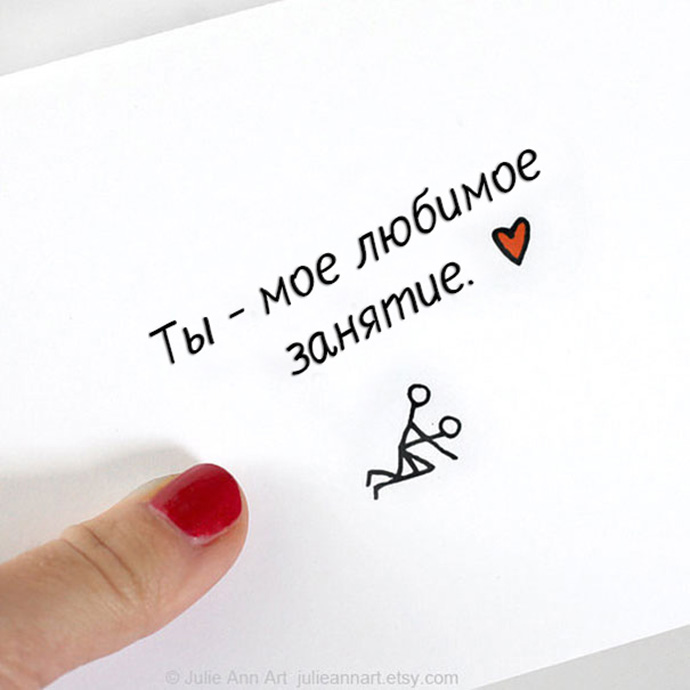 Ты - мое любимое
занятие.
© Julie Ann Art julieannart.etsy.com